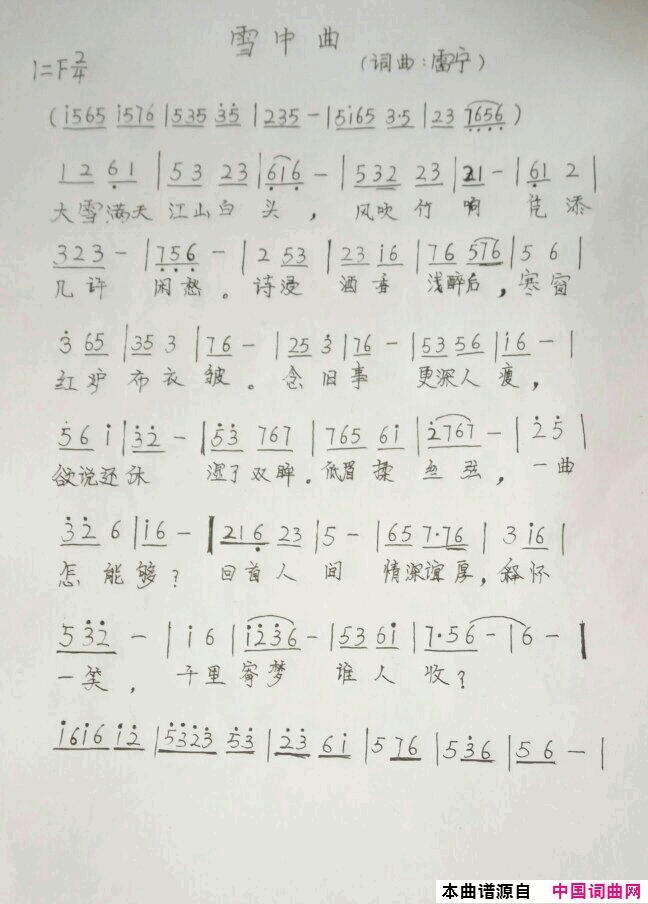 雪中曲
1=F 2/4
(词曲:雷宁)
(i565 i576 | 535 35 | 235 - | 5i65 3·5 | 23 7656)
1 2 61 | 53 23 | 616 - | 532 23 | 21 - | 61 2 |
大雪满天江山白头,风吹竹响凭添
323 - | 756 - | 2 53 | 23 i6 | 76 576 | 5 6 |
几许闲愁。诗漫酒香浅醉后,寒窗
3 65 | 35 3 | 76 - | 25 3 | 76 - | 53 56 | i6 - |
红炉布衣皱。念旧事更深人瘦,
56 i | 32 - | 53 767 | 765 6i | 2767 - | 2 5 |
欲说还休湿了双眸。低眉揉丝弦,一曲
32 6 | i6 - | 216 23 | 5 - | 65 7·76 | 3 i6 |
怎能够?回首人间情深谊厚,释怀
532 - | i 6 | i236 - | 53 6i | 7·56 - | 6 - |
一笑,千里寄梦谁人收?
i6i6 i2 | 5323 53 | 23 6i | 5 76 | 5 36 | 56 - |
本曲谱源自 中国词曲网